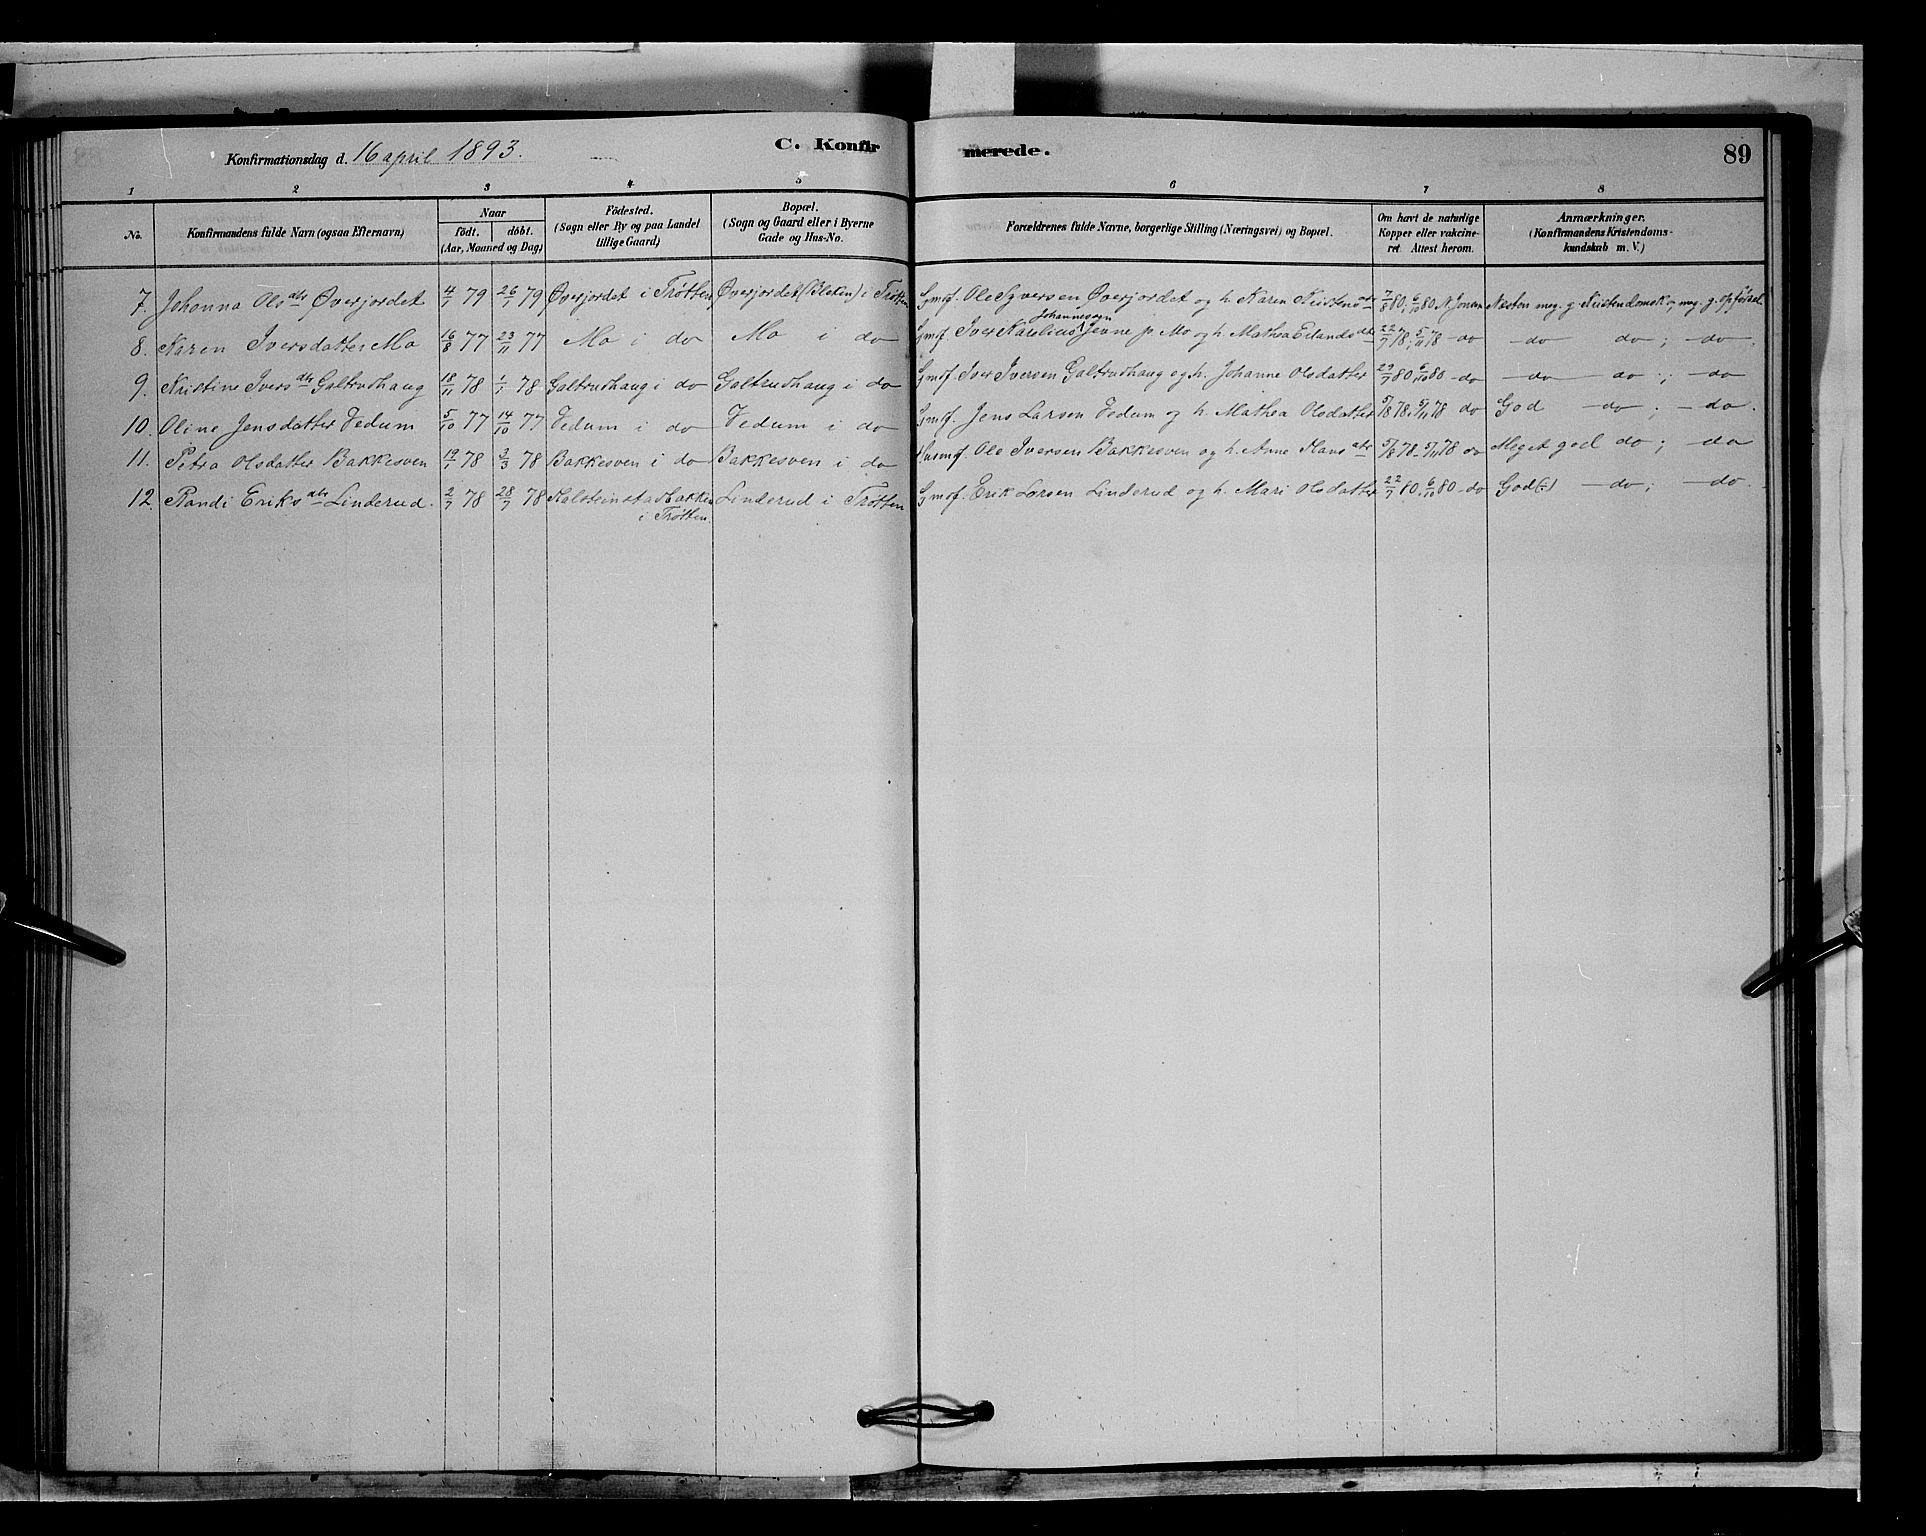 Konfirmationsdag d. 16 april 1893.
C. Konfirmerede.
89
1 2 3 4 5 6 7 8
No. Konfirmandens fulde Navn (ogsaa Efternavn) Naar födt. döbt. (Aar, Maaned og Dag) Födested. (Sogn eller By og paa Landet tillige Gaard) Bopæl. (Sogn og Gaard eller i Byerne Gade og Hus-No. Forældrenes fulde Navne, borgerlige Stilling (Næringsvei) og Bopæl. Om havt de naturlige Kopper eller vakcineret. Attest herom. Anmærkninger. (Konfirmandens Kristendomskundskab m. V.)
7. Johanna Olsdtr Øverjordet 4/1 79 26/1 79 Øverjordet i Trøtten Øverjordet (Bleken) i Trøtten Gmdf. Ole Syversen Øverjordet og h. Karen Kristensdtr 7/8 80, 6/10 80 N Jensen Næsten meg. g. Kristendomsk og meg. g. opførsel
8. Karen Iversdatter Mo 16/8 77 23/11 77 Mo i do Mo i do Gmdf. Iver Kaulius Johannesen Jevne p. Mo og h. Mathea Erlandsdtr 22/7 78; 5/11 78 do do do; do.
9. Kristine Iversdtr Galtrudhaug 18/11 78 1/1 78 Galtrudhaug i do Galtrudhaug i do Gmdf. Iver Iversen Galtrudhaug og h. Johanne Olsdatter 29/7 80, 6/10 80 do do do; do
10. Oline Jensdatter Vedum 5/10 77 14/10 77 Vedum i do Vedum i do Gmdf. Jens Larsen Vedum og h. Mathea Olsdatter 5/8 78. 5/11 78 do God do; do.
11. Petra Olsdatter Bakkesven 19/1 78 3/3 78 Bakkesven i do Bakkesven i do Husmf. Ole Iversen Bakkesven og h. Anne Hansdtr 5/8 78 5/11 78 do Meget god do; do
12. Randi Eriksdtr Linderud. 2/7 78 28/7 78 Kalsteinstadbakken i Trøtten Linderud i Trøtten Gmdf. Erik Larsen Linderud og h. Mari Olsdatter 22/7 80. 6/10 80 do God(÷) do; do.